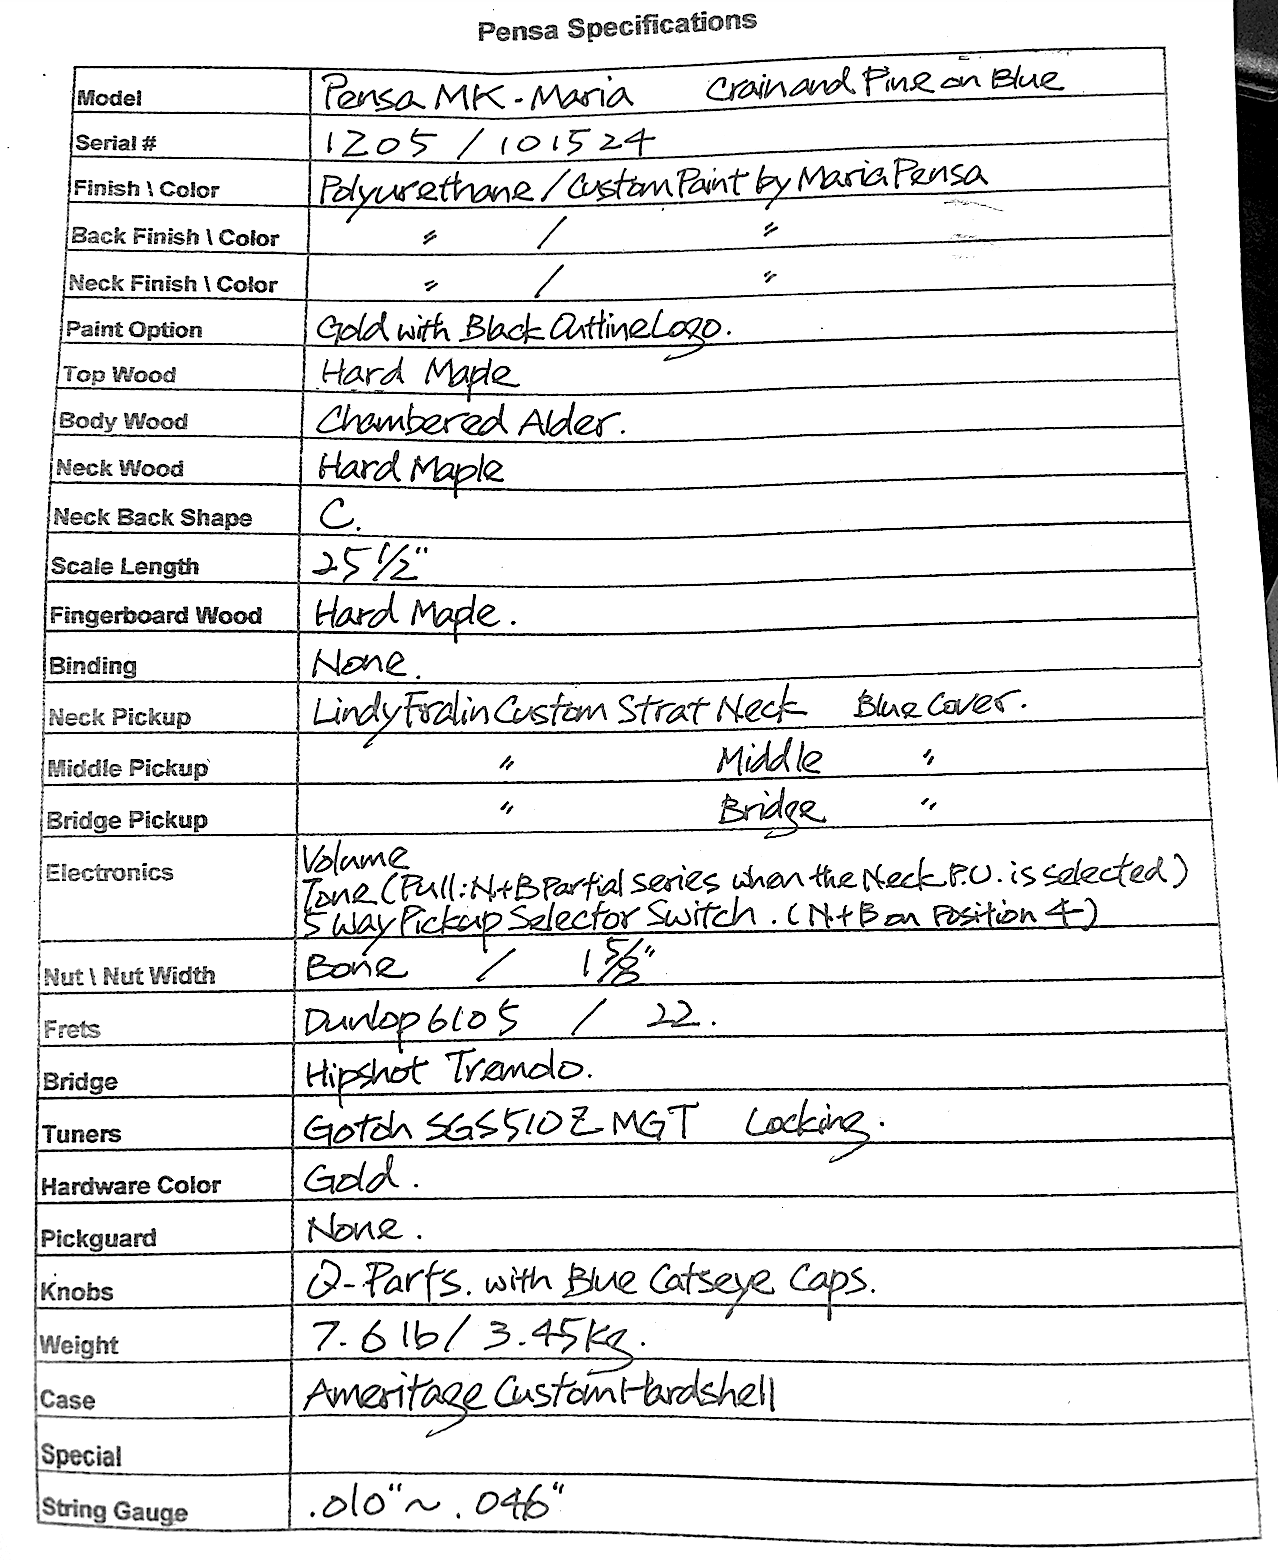 Pensa Specifications
Model Pensa MK-Maria Crain and Pine on Blue
Serial # 1205 / 101524
Finish \ Color Polyurethane / Custom Paint by Maria Pensa
Back Finish \ Color " / "
Neck Finish \ Color " / "
Paint Option Gold with Black Outline Logo.
Top Wood Hard Maple
Body Wood Chambered Alder.
Neck Wood Hard Maple
Neck Back Shape C.
Scale Length 25 1/2"
Fingerboard Wood Hard Maple.
Binding None.
Neck Pickup Lindy Fralin Custom Strat Neck Blue Cover.
Middle Pickup " Middle "
Bridge Pickup " Bridge "
Electronics Volume
Tone (Pull: N+B Partial series when the Neck P.U. is selected)
5 Way Pickup Selector Switch. (N+B on Position 4)
Nut \ Nut Width Bone / 1 5/8"
Frets Dunlop 6105 / 22.
Bridge Hipshot Tremolo.
Tuners Gotoh SGS510Z MGT Locking.
Hardware Color Gold.
Pickguard None.
Knobs Q-Parts. with Blue Catseye Caps.
Weight 7.6 lb / 3.45kg.
Case Ameritage Custom Hardshell
Special
String Gauge .010" ~ .046"